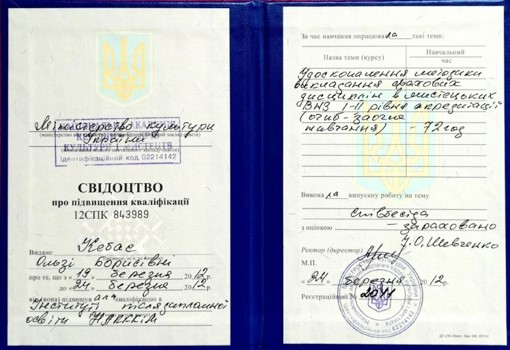 Міністерство культури
України
КУЛЬТУРИ І МИСТЕЦТВ
Ідентифікаційний код 02214142
СВІДОЦТВО
про підвищення кваліфікації
12СПК 843989
Видано Кебас
Ользі Борисівні
про те, що з "19" березня 2012
до "24" березня 2012
він (вона) підвищувала кваліфікацію в
Інституті післядипломної
освіти НАКККіМ
За час навчання опрацювала такі теми:
Назва теми (курсу)
Навчальний
час
Удосконалення методики
викладання фахових
дисциплін в мистецьких
ВНЗ І-ІІ рівня акредитації
(очно-заочне
навчання) - 72 год
Виконала випускну роботу на тему
Співбесіда
з оцінкою - зараховано
Ректор (директор)
Ю.О. Шевченко
М.П.
"24" березня 2012
Реєстраційний №